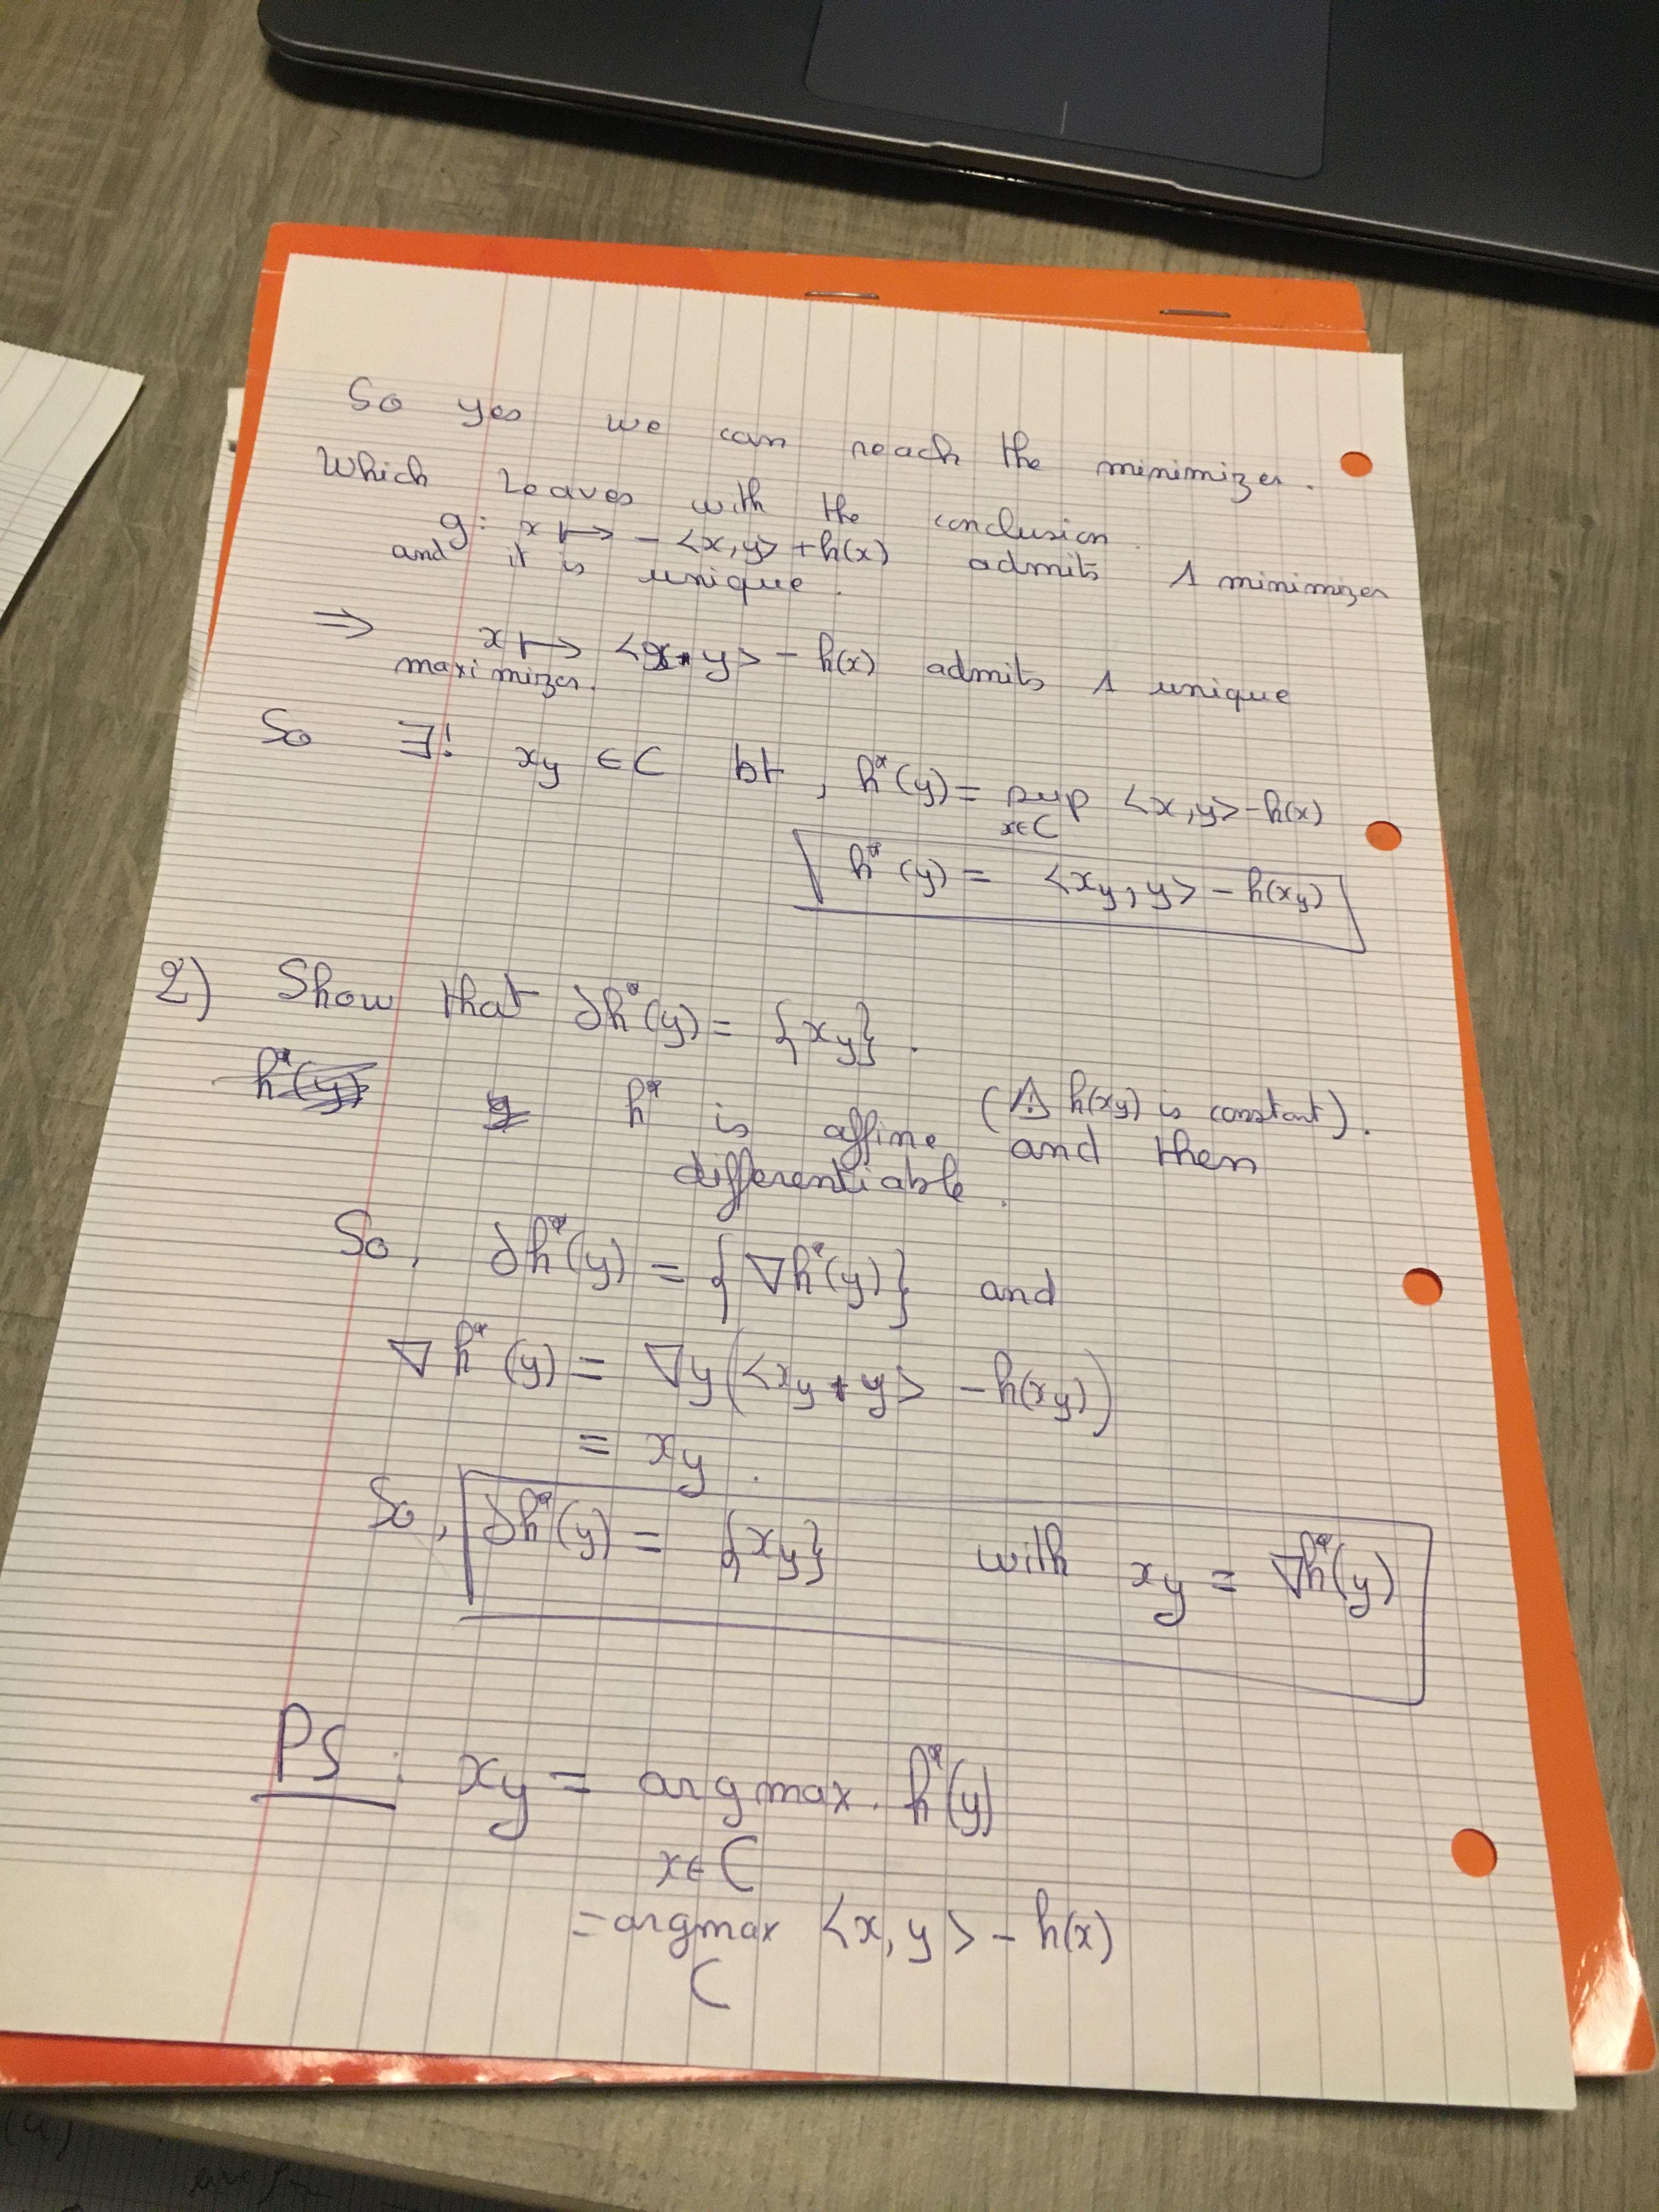 So yes we can reach the minimizer.
Which leaves with the conclusion.
g: x ↦ - <x,y> + h(x) admits 1 minimizer
and it is unique.
⇒ x ↦ <x, y> - h(x) admits 1 unique
maximizer.
So ∃! x_y ∈ C st, h*(y) = sup <x,y> - h(x)
x∈C
h*(y) = <x_y, y> - h(x_y)
2) Show that ∂h*(y) = {x_y}.
h*(y) h* is affine (⚠ h(x_y) is constant).
and then
differentiable.
So, ∂h*(y) = {∇h*(y)} and
∇h*(y) = ∇y(<x_y, y> - h(x_y))
= x_y.
So, ∂h*(y) = {x_y} with x_y = ∇h*(y)
PS: x_y = argmax. h*(y)
x∈C
= argmax <x, y> - h(x)
C